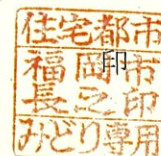 住宅都市
福岡市
長之印
みどり専用
印